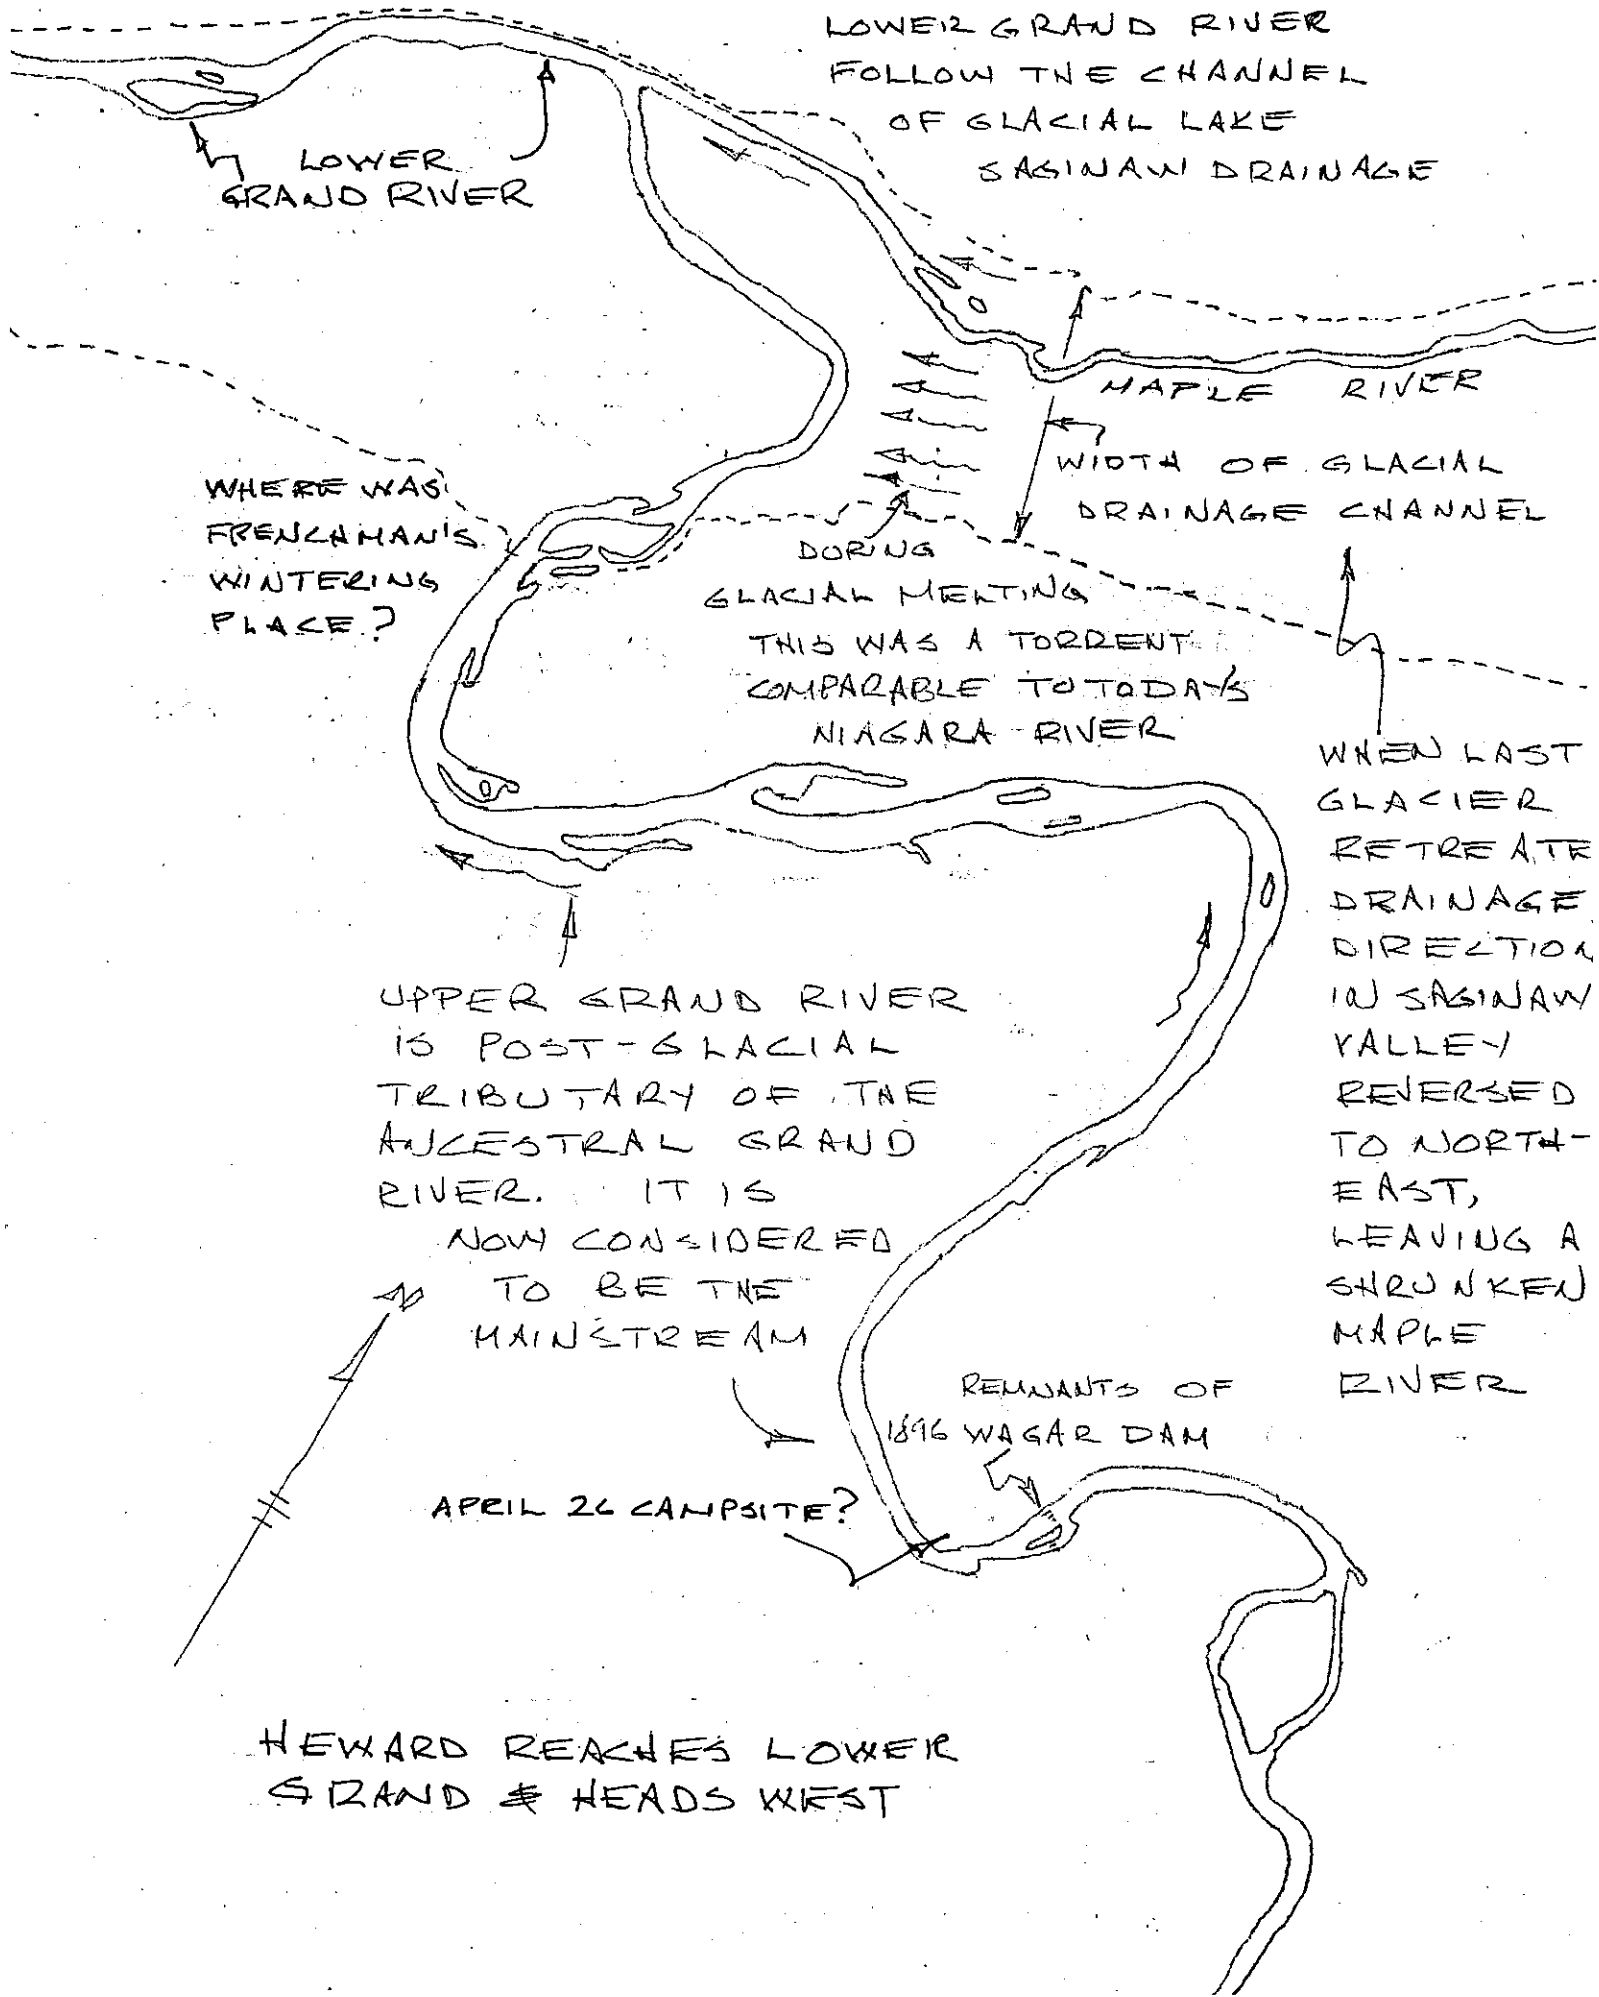 LOWER GRAND RIVER
FOLLOW THE CHANNEL
OF GLACIAL LAKE
SAGINAW DRAINAGE
LOWER
GRAND RIVER
MAPLE RIVER
WIDTH OF GLACIAL
DRAINAGE CHANNEL
WHERE WAS
FRENCHMAN'S
WINTERING
PLACE?
DURING
GLACIAL MELTING
THIS WAS A TORRENT
COMPARABLE TO TODAYS
NIAGARA RIVER
WHEN LAST
GLACIER
RETREATE
DRAINAGE
DIRECTION
IN SAGINAW
VALLEY
REVERSED
TO NORTH-
EAST,
LEAVING A
SHRUNKEN
MAPLE
RIVER
UPPER GRAND RIVER
IS POST-GLACIAL
TRIBUTARY OF THE
ANCESTRAL GRAND
RIVER. IT IS
NOW CONSIDERED
TO BE THE
MAINSTREAM
N
REMNANTS OF
1896 WAGAR DAM
APRIL 26 CAMPSITE?
HEWARD REACHES LOWER
GRAND & HEADS WEST